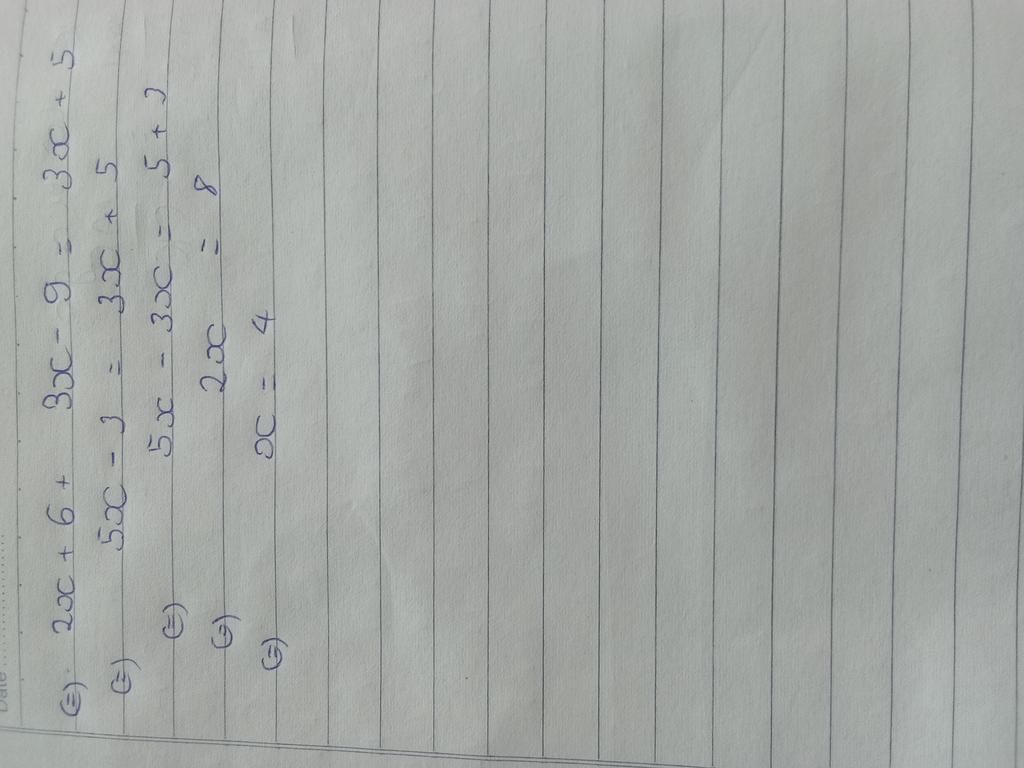 Date
(=) 2x + 6 + 3x - 9 = 3x + 5
(=) 5x - 3 = 3x + 5
(=) 5x - 3x = 5 + 3
(=) 2x = 8
(=) x = 4